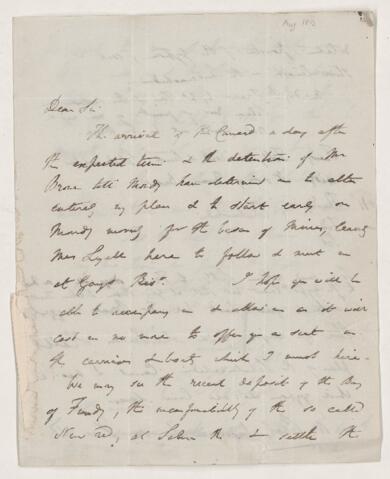 Aug 18
Dear Sir,
The arrival of the Cunard a day after
the expected time & the detention of Mr
Brown till Monday have determined me to alter
entirely my plan & to start early on
Monday morning for the basin of Mines, leaving
Mrs Lyell here to follow & meet me
at Gays Rivr. I hope you will be
able to accompany me & as it will
cost me no more to offer you a seat in
the carriage & boat which I must hire.
We may see the recent deposit of the Bay
of Fundy, the unconformability of the so called
New red, at & settle the